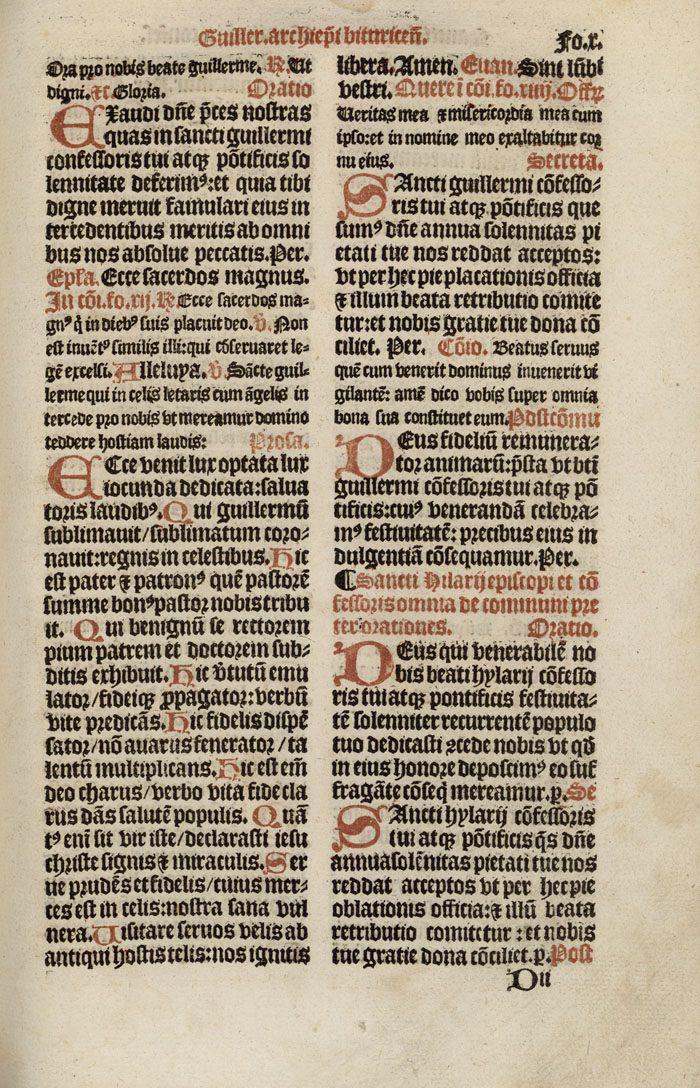 Guiller. archiep̄i bituricen̄.
Fo.x.
Ora pro nobis beate guillerme. ℟. Ut
digni. ⁊c Gloria. Oratio
EXaudi dn̄e p̄ces nostras
quas in sancti guillermi
confessoris tui atqꝫ pōtificis so
lennitate deferimꝰ: et quia tibi
digne meruit famulari eius in
tercedentibus meritis ab omni
bus nos absolue peccatis. Per.
Ep̄la. Ecce sacerdos magnus.
In cōi. fo. xij. ℟ Ecce sacerdos ma⸗
gnꝰ q̇ in diebꝰ suis placuit deo. ℣. Non
est inuētꝰ similis illi: qui cōseruaret le⸗
gē excelsi. Alleluya. ℣ Sācte guil⸗
lerme qui in celis letaris cum āgelis in
tercede pro nobis vt mereamur domino
reddere hostiam laudis: Prosa.
ECce venit lux optata lux
iocunda dedicata: salua
toris laudibꝰ. Qui guillermū
sublimauit/sublimatum coro⸗
nauit: regnis in celestibus. Hic
est pater ⁊ patronꝰ quē pastorē
summe bonꝰ pastor nobis tribu
it. Qui benignū se rectorem
pium patrem et doctorem sub⸗
ditis exhibuit. Hic v̄tutū emu
lator/fideiqꝫ ꝓpagator: verbū
vite predicās. Hic fidelis dispē
sator/nō auarus fenerator/ta
lentū multiplicans. Hic est em̄
deo charus/verbo vita fide cla
rus dās salutē populis. Quā
tꝰ eni sit vir iste/declarasti iesu
christe signis ⁊ miraculis. Ser
ue prudēs et fidelis/cuius mer⸗
ces est in celis: nostra sana vul
nera. Uisitare seruos velis ab
antiqui hostis telis: nos ignitis
libera. Amen. Euan. Sint lūbi
vestri. Quere ī cōi. fo. xiiij. Offꝝ
Veritas mea ⁊ misericordia mea cum
ipso: et in nomine meo exaltabitur cor
nu eius. Secreta.
SAncti guillermi cōfesso⸗
ris tui atqꝫ pōtificis que
sumꝰ dn̄e annua solennitas pi
etati tue nos reddat acceptos:
vt per hec pie placationis officia
⁊ illum beata retributio comite
tur: et nobis gratie tue dona cō
ciliet. Per. Cōio. Beatus seruus
quē cum venerit dominus inuenerit vi
gilantē: amē dico vobis super omnia
bona sua constituet eum. Postcōmu
DEus fideliū remunera⸗
tor animarū: p̄sta vt bt̄i
guillermi cōfessoris tui atqꝫ pō
tificis: cuiꝰ venerandā celebra⸗
mꝰ festiuitatē: precibus eius in
dulgentiā cōsequamur. Per.
¶ Sancti Hilarij episcopi et cō
fessoris omnia de communi pre
ter orationes. Oratio.
DEus qui venerabilē no
bis beati hylarij cōfesso
ris tui atqꝫ pontificis festiuita⸗
tē solenniter recurrentē populo
tuo dedicasti ꝯcede nobis vt qd̄
in eius honore deposcimꝰ eo suf
fragāte cōseq̄ mereamur. ꝑ. Se
SAncti hylarij cōfessoris
tui atqꝫ pōtificis q̄s dn̄e
annua solēnitas pietati tue nos
reddat acceptos vt per hec pie
oblationis officia: ⁊ illū beata
retributio comitetur: et nobis
tue gratie dona cōciliet. ꝑ. Post
D ii